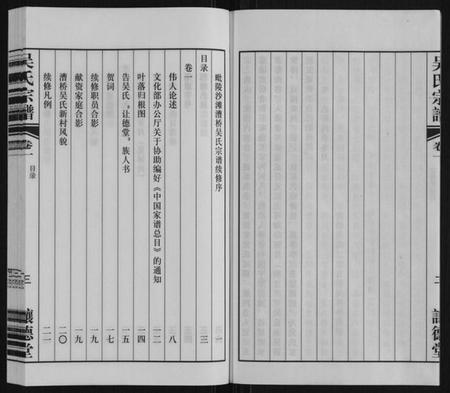 吴氏宗譜
卷一
二
讓德堂
毗陵沙滩漕桥吴氏宗谱续修序 一
目录 三
卷一
伟人论述 八
文化部办公厅关于协助编好《中国家谱总目》的通知 一二
叶落归根图 一四
告吴氏“让德堂”族人书 一五
贺词 一七
续修职员合影 一九
献资家庭合影 一九
漕桥吴氏新村风貌 二〇
续修凡例 二一
吴氏宗譜
卷一
目录
三
讓德堂